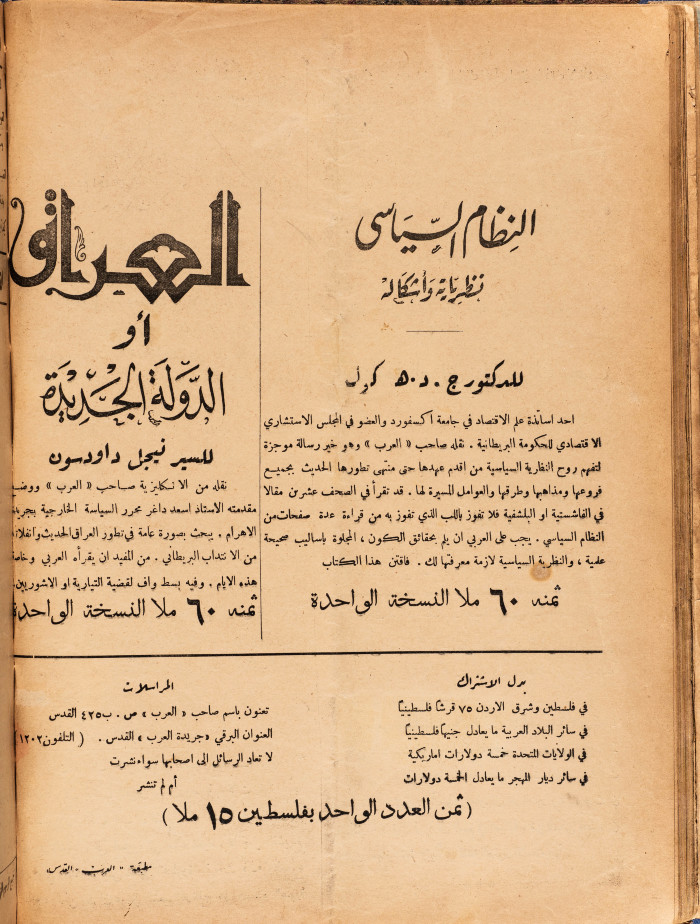 النظام السياسي
نظرياته وأشكاله
للدكتور ج . د . ه كول
احد اساتذة علم الاقتصاد في جامعة أكسفورد والعضو في المجلس الاستشاري
الاقتصادي للحكومة البريطانية . نقله صاحب « العرب » وهو خير رسالة موجزة
لتفهم روح النظرية السياسية من اقدم عهدها حتى منتهى تطورها الحديث بجميع
فروعها ومذاهبها وطرقها والعوامل المسيرة لها . قد تقرأ في الصحف عشرين مقالا
في الفاشستية او البلشفية فلا تفوز باللب الذي تفوز به من قراءة عدة صفحات من
النظام السياسي . يجب على العربي ان يلم بحقائق الكون ، المجلوة باساليب صحيحة
علمية ، والنظرية السياسية لازمة معرفتها لك . فاقتن هذا الكتاب
ثمنه ٦٠ ملا النسخة الواحدة
العراق
أو
الدولة الجديدة
للسير نيجل داودسون
نقله من الانكليزية صاحب « العرب » ووضع
مقدمته الاستاذ اسعد داغر محرر السياسة الخارجية بجريدة
الاهرام . يبحث بصورة عامة في تطور العراق الحديث وانفلاته
من الانتداب البريطاني . من المفيد ان يقرأه العربي وخاصة
هذه الايام . وفيه بسط واف لقضية التيارية او الاشوريين .
ثمنه ٦٠ ملا النسخة الواحدة
بدل الاشتراك
في فلسطين وشرق الاردن ٧٥ قرشا فلسطينيا
في سائر البلاد العربية ما يعادل جنيها فلسطينيا
في الولايات المتحدة خمسة دولارات اماريكية
في سائر ديار المهجر ما يعادل الخمسة دولارات
المراسلات
تعنون باسم صاحب « العرب » ص . ب ٤٢٥ القدس
العنوان البرقي «جريدة العرب» القدس . ( التلفون ١٢٠٢ )
لا تعاد الرسائل الى اصحابها سواء نشرت
أم لم تنشر
( ثمن العدد الواحد بفلسطين ١٥ ملا )
مطبعة " العرب " القدس